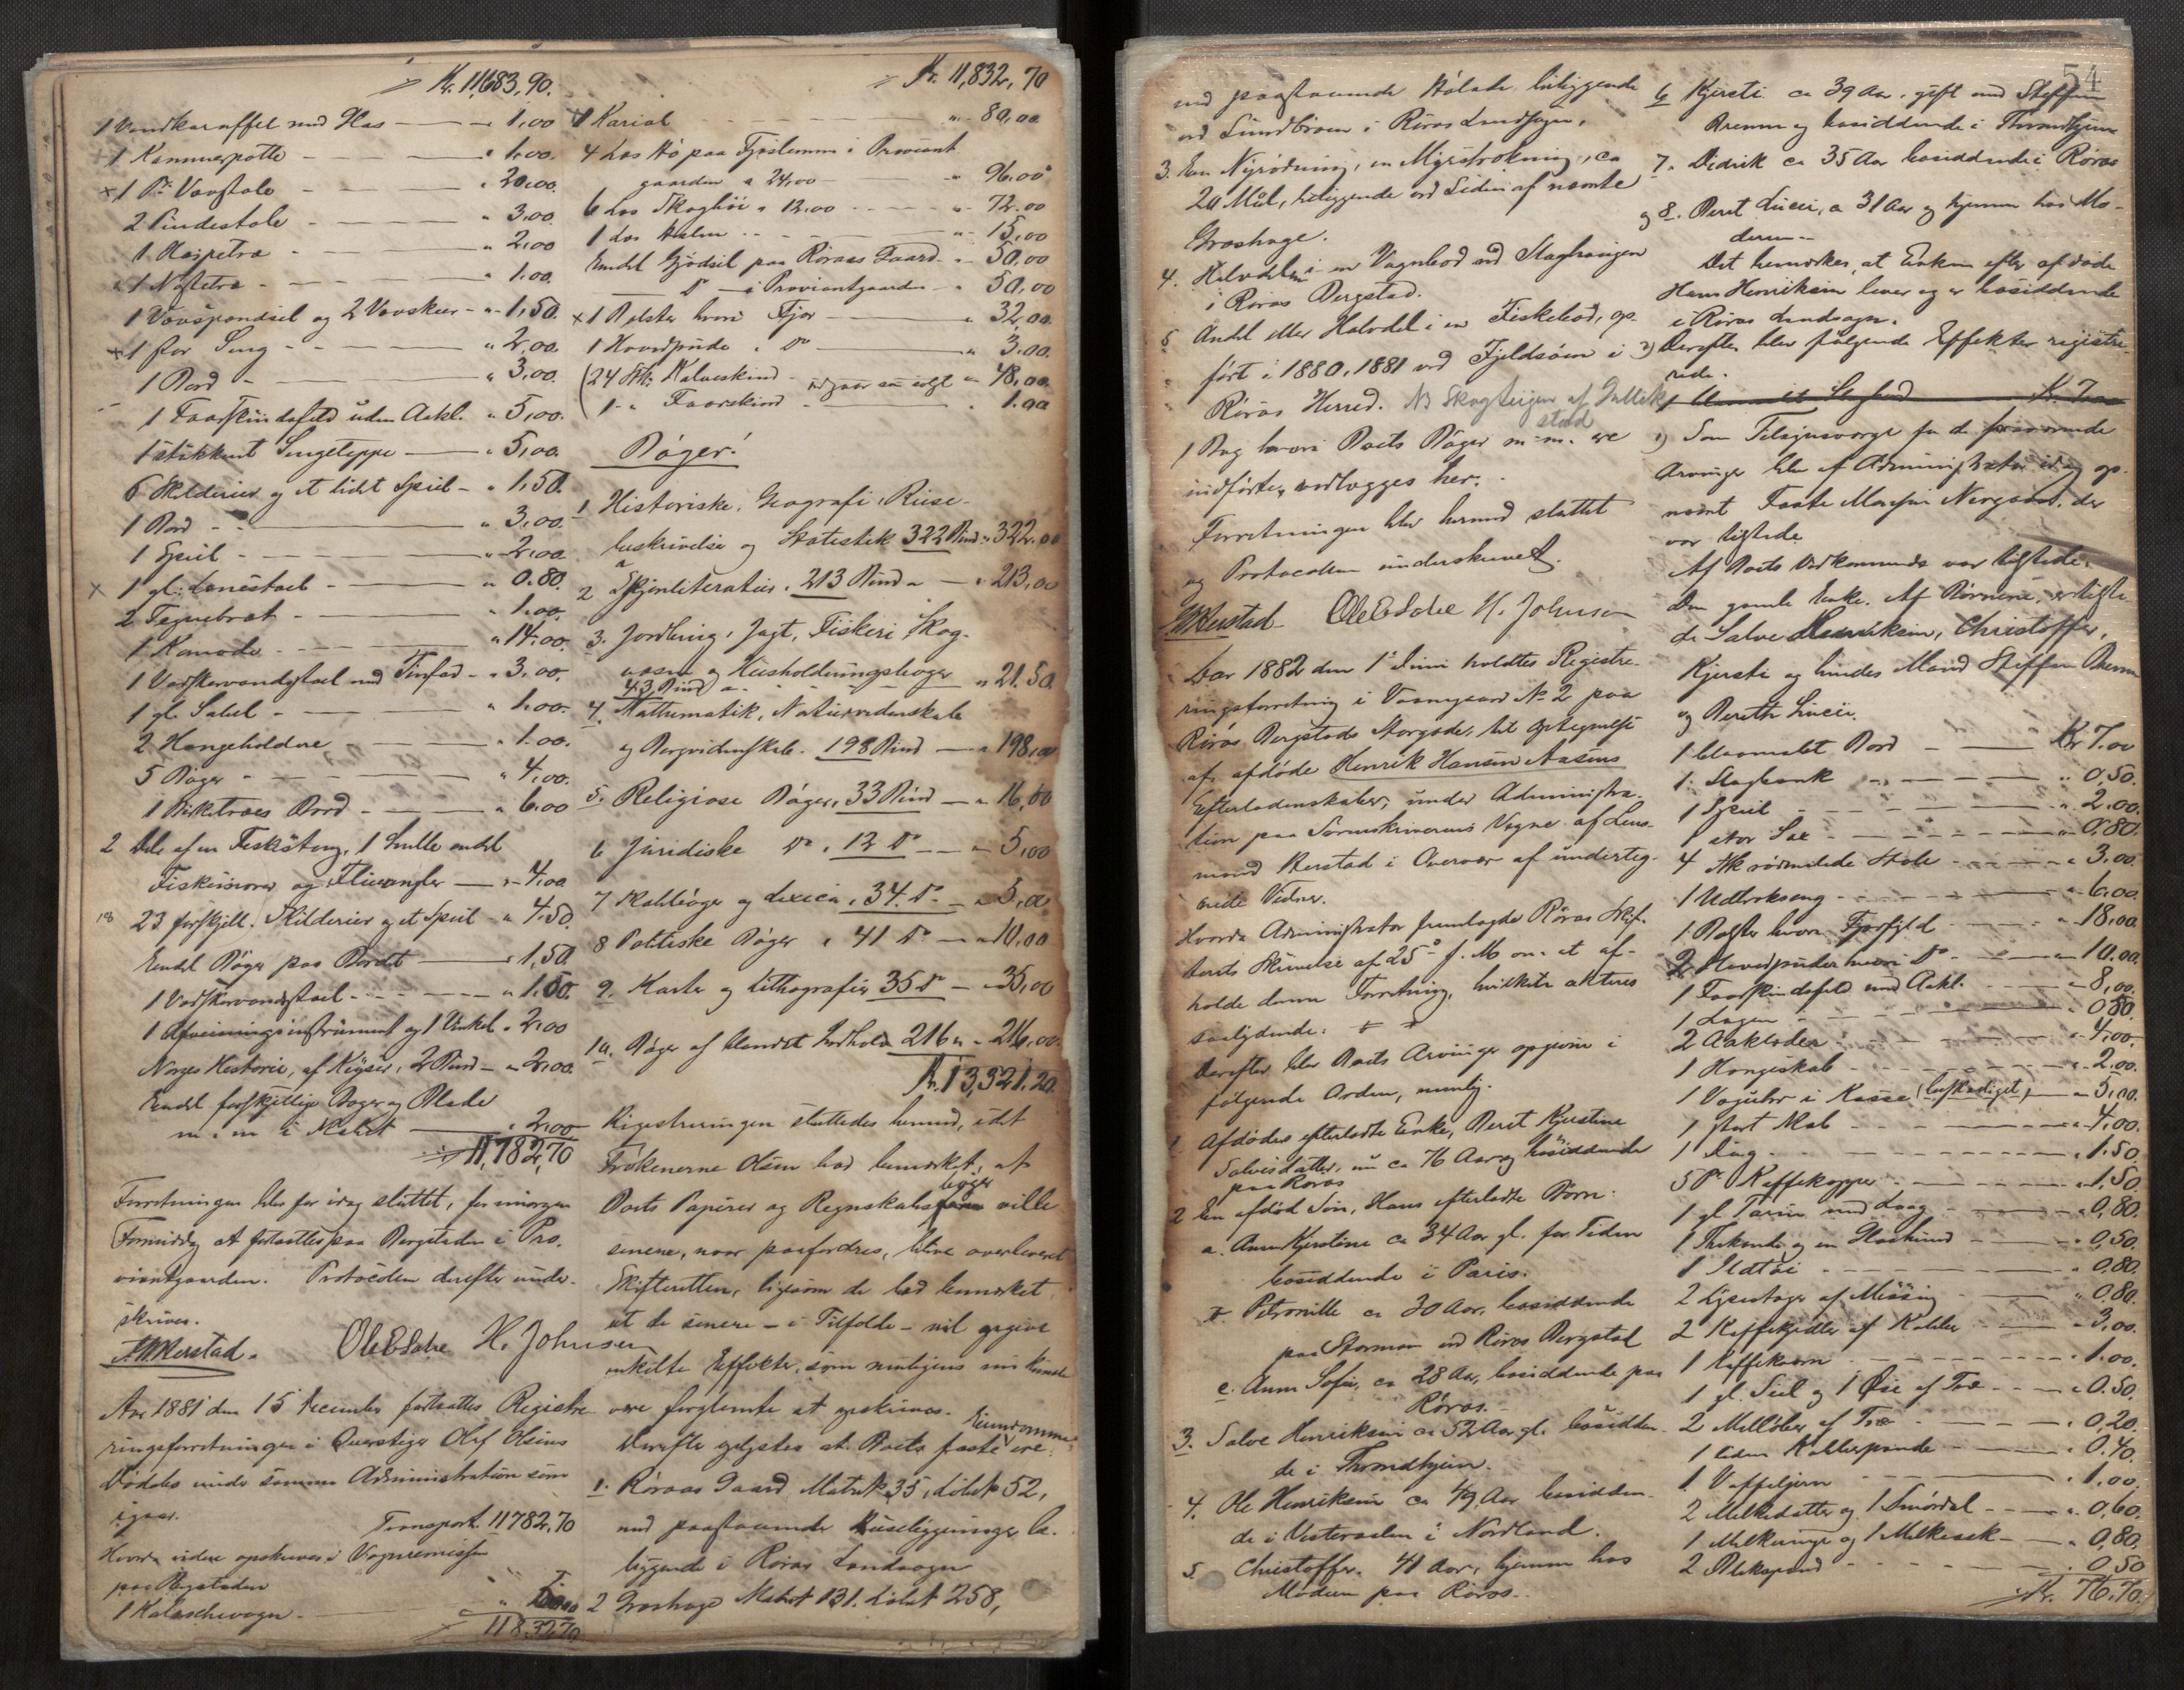 Kr. 11,683,90.
1 Vandkaraffel med Glas — " 1,00
1 Kammerpotte — " 1,00.
x 1 Pr Vævstole — " 20,00.
2 Pindestole — " 3,00.
1 Haspetræ — " 2,00
1 Nøstetræ — " 1,00.
1 Vævspændsel og 2 Vævskeer — " 1,50.
x 1 for Seng — " 2,00.
1 Bord — " 3,00.
1 Faarskindsfeld uden Aakl. " 5,00.
1 stukkent Sengeteppe — " 5,00.
6 Skilderier og et lidet Speil — " 1,50.
1 Bord — " 3,00.
1 Speil — " 2,00.
x 1 gl. Lænestoel — " 0.80.
2 Tegnebræt — " 1,00.
1 Komode — " 14,00.
1 Vadskevandstoel med Tinfad — " 3,00.
1 gl. Sabel — " 1,00.
2 Hængeholdere — " 1.00.
5 Bøger — " 4,00.
1 Birketræes Bord — " 6.00
2 Dele af en Fiskestang, 1 Snelle endel
Fiskesnører og Flueangler — " 4,00
18 23 forskjell. Skilderier og et Speil — " 4,50.
Endel Bøger paa Bordet — " 1,50.
1 Vadskevandstoel — " 1.50.
1 Afveiningsinstrument og 1 Vinkel " 2,00
Norges Historie, af Keyser, 2 Bind — " 2,00.
Endel forskjellige Bøger og Blade
m. m. i Skabet — " 2,00
11,782,70
Forretningen blev for idag sluttet, for imorgen
Formiddag at fortsættes paa Bergstaden i Pro-
viantgaarden. Protocollen derefter under-
skreven.
Kerstad. Ole E Sohre H. Johnsen
Aar 1881 den 15 December fortsattes Registre-
ringsforretningen i Overstiger Olef Olsens
Dødsbo under samme Administration som
igaar. Transport 11782,70
Hvorda videre opskreves i Vognremissen
paa Bergstaden
1 Kaleschevogn —
11832,70
Kr. 11,832,70
1 Kariol — " 80,00
4 Læs Hø paa Fjøslemmen i Proviant
gaarden a 24,00 — " 96,00
6 Læs Skoghøi a 12,00 — " 72,00
1 Læs Halm — " 15,00
Endel Gjødsel paa Røraas Gaard — " 50,00
Do — i Proviantgaarden — " 50,00
x 1 Bolster hvori Fjær — " 32,00.
1 Hovedpude " Do — " 3.00.
(24 Stk. Kalveskind — udgaar som solgt " 48,00.
( 1 " Faareskind — " 1.00
Bøger:
1 Historiske, Geografi, Reise-
beskrivelse og Statistik 322 Bind " 322.00
2 Skjønliteratur. 213 Bind a — " 213,00
3. Jordbrug, Jagt, Fiskeri, Skog-
væsen og Husholdningsbøger
43 Bind a — " 21.50
4. Mathematik, Naturvidenskab
og Bergvidenskab. 198 Bind — " 198,00
5. Religiøse Bøger, 33 Bind — " 16,00
6 Juridiske Do. 12 Do — " 5,00
7 Skolebøger og Lexica, 34. Do — " 5,00
8 Politiske Bøger " 41 Do — " 10,00
9. Karter og Lithografier 35 Do — " 35,00
10. Bøger af blandet Indhold 216 " — " 216,00
Kr. 13,321,20.
Registreringen sluttedes hermed, idet
Frøkenerne Olsen bad bemærket, at
Boets Papirer og Regnskabsbøger ville
senere, naar paafordres, blive overleveret
Skifteretten, ligesom de bad bemærket
at de senere — i Tilfælde — vil opgive
enkelte Effekter, som muligens nu kunde
være forglemte at opskrives.
Derefter oplystes at Boets faste Eiendomme ere:
1. Røraas Gaard Matr. No 35, Løbe No 52,
med paastaaende Huseligninger be-
liggende i Røros Landsogn
2 Græshage Matr No 131. Løbe No 258,
54
med paastaaende Hølade, beliggende
ved Sundbroen i Røros Landsogn,
3. En Nyrødning, en Myrstrækning, ca
20 Mål, beliggende ved Siden af nævnte
Græshage.
4. Halvdelen i en Vognbod ved Slaghaugen
i Røros Bergstad.
5 Andel eller Halvdel i en Fiskebod, op-
ført i 1880, 1881 ved Fjeldsøen i
Røros Herred. NB Skogteigen af Galtek
stad
1 Bog hvori Boets Bøger m. m. ere
indførte, vedlægges her.
Forretningen blev hermed sluttet
og Protocollen underskrevet.
Kerstad Ole E Sohre H. Johnsen
Aar 1882 den 1ste Juni holdtes Registre-
ringsforretning i Vaaningsgaard No 2 paa
Røros Bergstads Storgade, til Optegnelse
af afdøde Henrik Hansen Aasens
Efterladenskaber, under Administra-
tion paa Sorenskriverens Vegne af Lens-
mand Kerstad i Overvær af underteg-
nede Vidner.
Hvorda Administrator fremlagde Røros Skif-
terets Skrivelse af 25de f. M. om at af-
holde denne Forretning, hvilken akteres
saalydende:
Derefter blev Boets Arvinger opgivne i
følgende Orden, nemlig.
1 Afdødes efterladte Enke, Beret Kjerstine
Salvesdatter, nu ca 76 Aar og bosiddende
paa Røros
2 En afdød Søn, Hans efterladte Børn:
a. Anne Kjerstine ca 34 Aar gl. for Tiden
bosiddende i Paris.
b Petronille ca 30 Aar, bosiddende
paa Stormoen ved Røros Bergstad
c. Anne Sofie, ca 28 Aar, bosiddende paa
Røros.
3. Salve Henriksen ca 52 Aar gl. bosidden-
de i Throndhjem.
4. Ole Henriksen ca 49 Aar bosidden-
de i Vesteraalen i Nordland.
5 Christoffer. 41 Aar, hjemme hos
Moderen paa Røros.
6 Kjersti ca 39 Aar, gift med Steffen
Brenne og bosiddende i Throndhjem
7. Didrik ca 35 Aar bosiddende i Røros
og 8. Beret Lucie, a 31 Aar og hjemme hos Mo-
deren —
Det bemærkes, at Enken efter afdøde
Hans Henriksen lever og er bosiddende
i Røros Landsogn.
2) Derefter blev følgende Effekter registre-
rede.
1) Som Tilsynsværge for de fraværende
Arvinger blev af Administrator idag op-
nævnt Faste Mortsen Nergaard, der
var tilstede
Af Boets Vedkommende var tilstede:
Den gamle Enke. Af Børnene, er tilste-
de Salve Henriksen, Christoffer,
Kjersti og hendes Mand Steffen Brenne
og Bereth Lucie.
1 blaamalet Bord — Kr 7.00
1 Slagbænk — " 0,50.
1 Speil — " 2.00.
1 stor Sax — " 0,80.
4 Stk rødmalede Stole — " 3,00.
1 Udtrækseng — " 6.00
1 Bolster hvori Fjærfyld — " 18,00.
2 Hovedpuder hvori Do — " 10.00.
1 Faarskindsfeld med Aakl. — " 8,00.
1 Lagen — " 0,80.
2 Aaklæder — " 4,00.
1 Hængeskab — " 2,00.
1 Væguhr i Kasse (beskadiget) — " 5,00.
1 stort Skab — " 4,00.
1 Dug — " 1.50
5 Pr Kaffekopper — " 1,50.
1 gl. Tærin med Laag — " 0,80.
1 Thekande og en Glaskand — " 0,50.
1 Ildtøi — " 0,80.
2 Lysestager af Messing — " 0,80.
2 Kaffekjedler af Kobber — " 3,00.
1 Kaffekværn — " 1.00.
1 gl. Siel og 1 Øse af Træ — " 0.50.
2 Melløber af Træ — " 0,20.
1 liden Kobberpande — " 0.40.
1 Vaffeljern — " 1.00.
2 Melkebøtter og 1 Smørdal — " 0,60.
1 Melkeringe og 1 Melkesek — " 0,80.
2 Blekspand — " 0,50
Kr. 76.70.